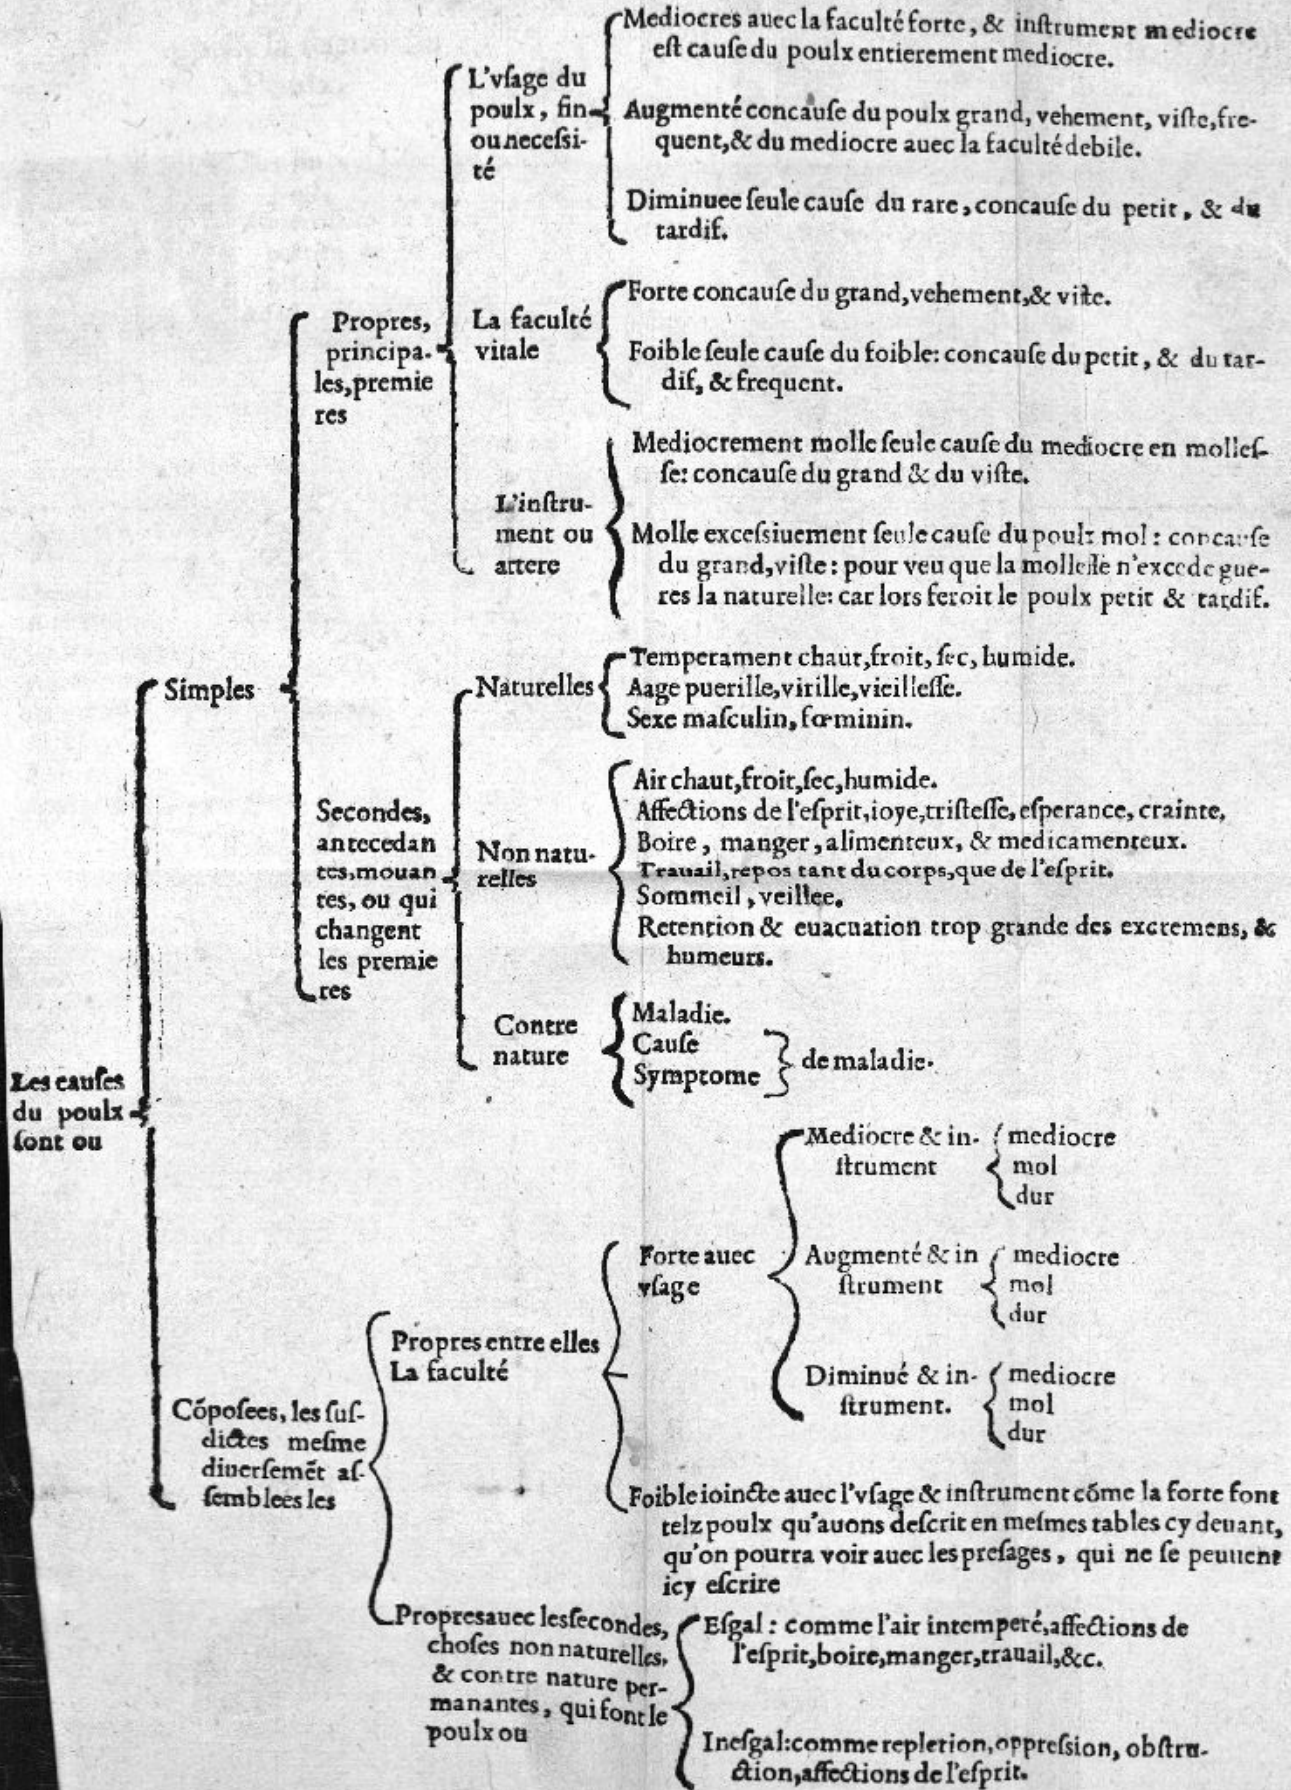 Mediocres auec la faculté forte, & inſtrument mediocre
eſt cauſe du poulx entierement mediocre.
L'vſage du
poulx, fin
ou neceſsi-
té
Augmenté concauſe du poulx grand, vehement, viſte, fre-
quent, & du mediocre auec la faculté debile.
Diminuee ſeule cauſe du rare, concauſe du petit, & du
tardif.
Propres,
principa-
les, premie
res
La faculté
vitale
Forte concauſe du grand, vehement, & viſte.
Foible ſeule cauſe du foible: concauſe du petit, & du tar-
dif, & frequent.
L'inſtru-
ment ou
artere
Mediocrement molle ſeule cauſe du mediocre en molleſ-
ſe: concauſe du grand & du viſte.
Molle exceſsiuement ſeule cauſe du poulx mol: concauſe
du grand, viſte: pour veu que la molleſſe n'excede gue-
res la naturelle: car lors feroit le poulx petit & tardif.
Simples
Naturelles
Temperament chaut, froit, ſec, humide.
Aage puerille, virille, vieilleſſe.
Sexe maſculin, fœminin.
Secondes,
antecedan
tes, mouan
tes, ou qui
changent
les premie
res
Non natu-
relles
Air chaut, froit, ſec, humide.
Affections de l'eſprit, ioye, triſteſſe, eſperance, crainte,
Boire, manger, alimenteux, & medicamenteux.
Trauail, repos tant du corps, que de l'eſprit.
Sommeil, veillee.
Retention & euacuation trop grande des excremens, &
humeurs.
Contre
nature
Maladie.
Cauſe
Symptome
de maladie.
Les cauſes
du poulx
ſont ou
Cõpoſees, les ſuſ-
dictes meſme
diuerſemẽt aſ-
ſemblees les
Propres entre elles
La faculté
Forte auec
vſage
Mediocre & in-
ſtrument
mediocre
mol
dur
Augmenté & in
ſtrument
mediocre
mol
dur
Diminué & in-
ſtrument.
mediocre
mol
dur
Foible ioincte auec l'vſage & inſtrument cõme la forte font
telz poulx qu'auons deſcrit en meſmes tables cy deuant,
qu'on pourra voir auec les preſages, qui ne ſe peuuent
icy eſcrire
Propres auec les ſecondes,
choſes non naturelles,
& contre nature per-
manantes, qui font le
poulx ou
Eſgal: comme l'air intemperé, affections de
l'eſprit, boire, manger, trauail, &c.
Ineſgal: comme repletion, oppreſsion, obſtru-
ction, affections de l'eſprit.